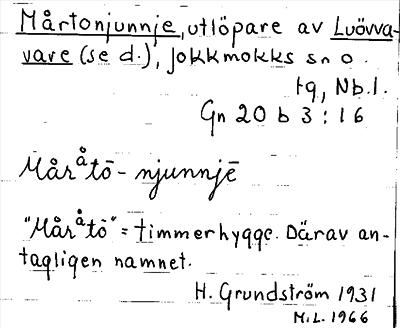 Mårtonjunnje, utlöpare av Luövva-
vare (se d.), Jokkmokks sn o.
tg, Nb.l.
Gn 20 b 3 : 16
Måråtō - njunnjē
"Måråtō" = timmerhygge. Därav an-
tagligen namnet.
H. Grundström 1931
M.L. 1966